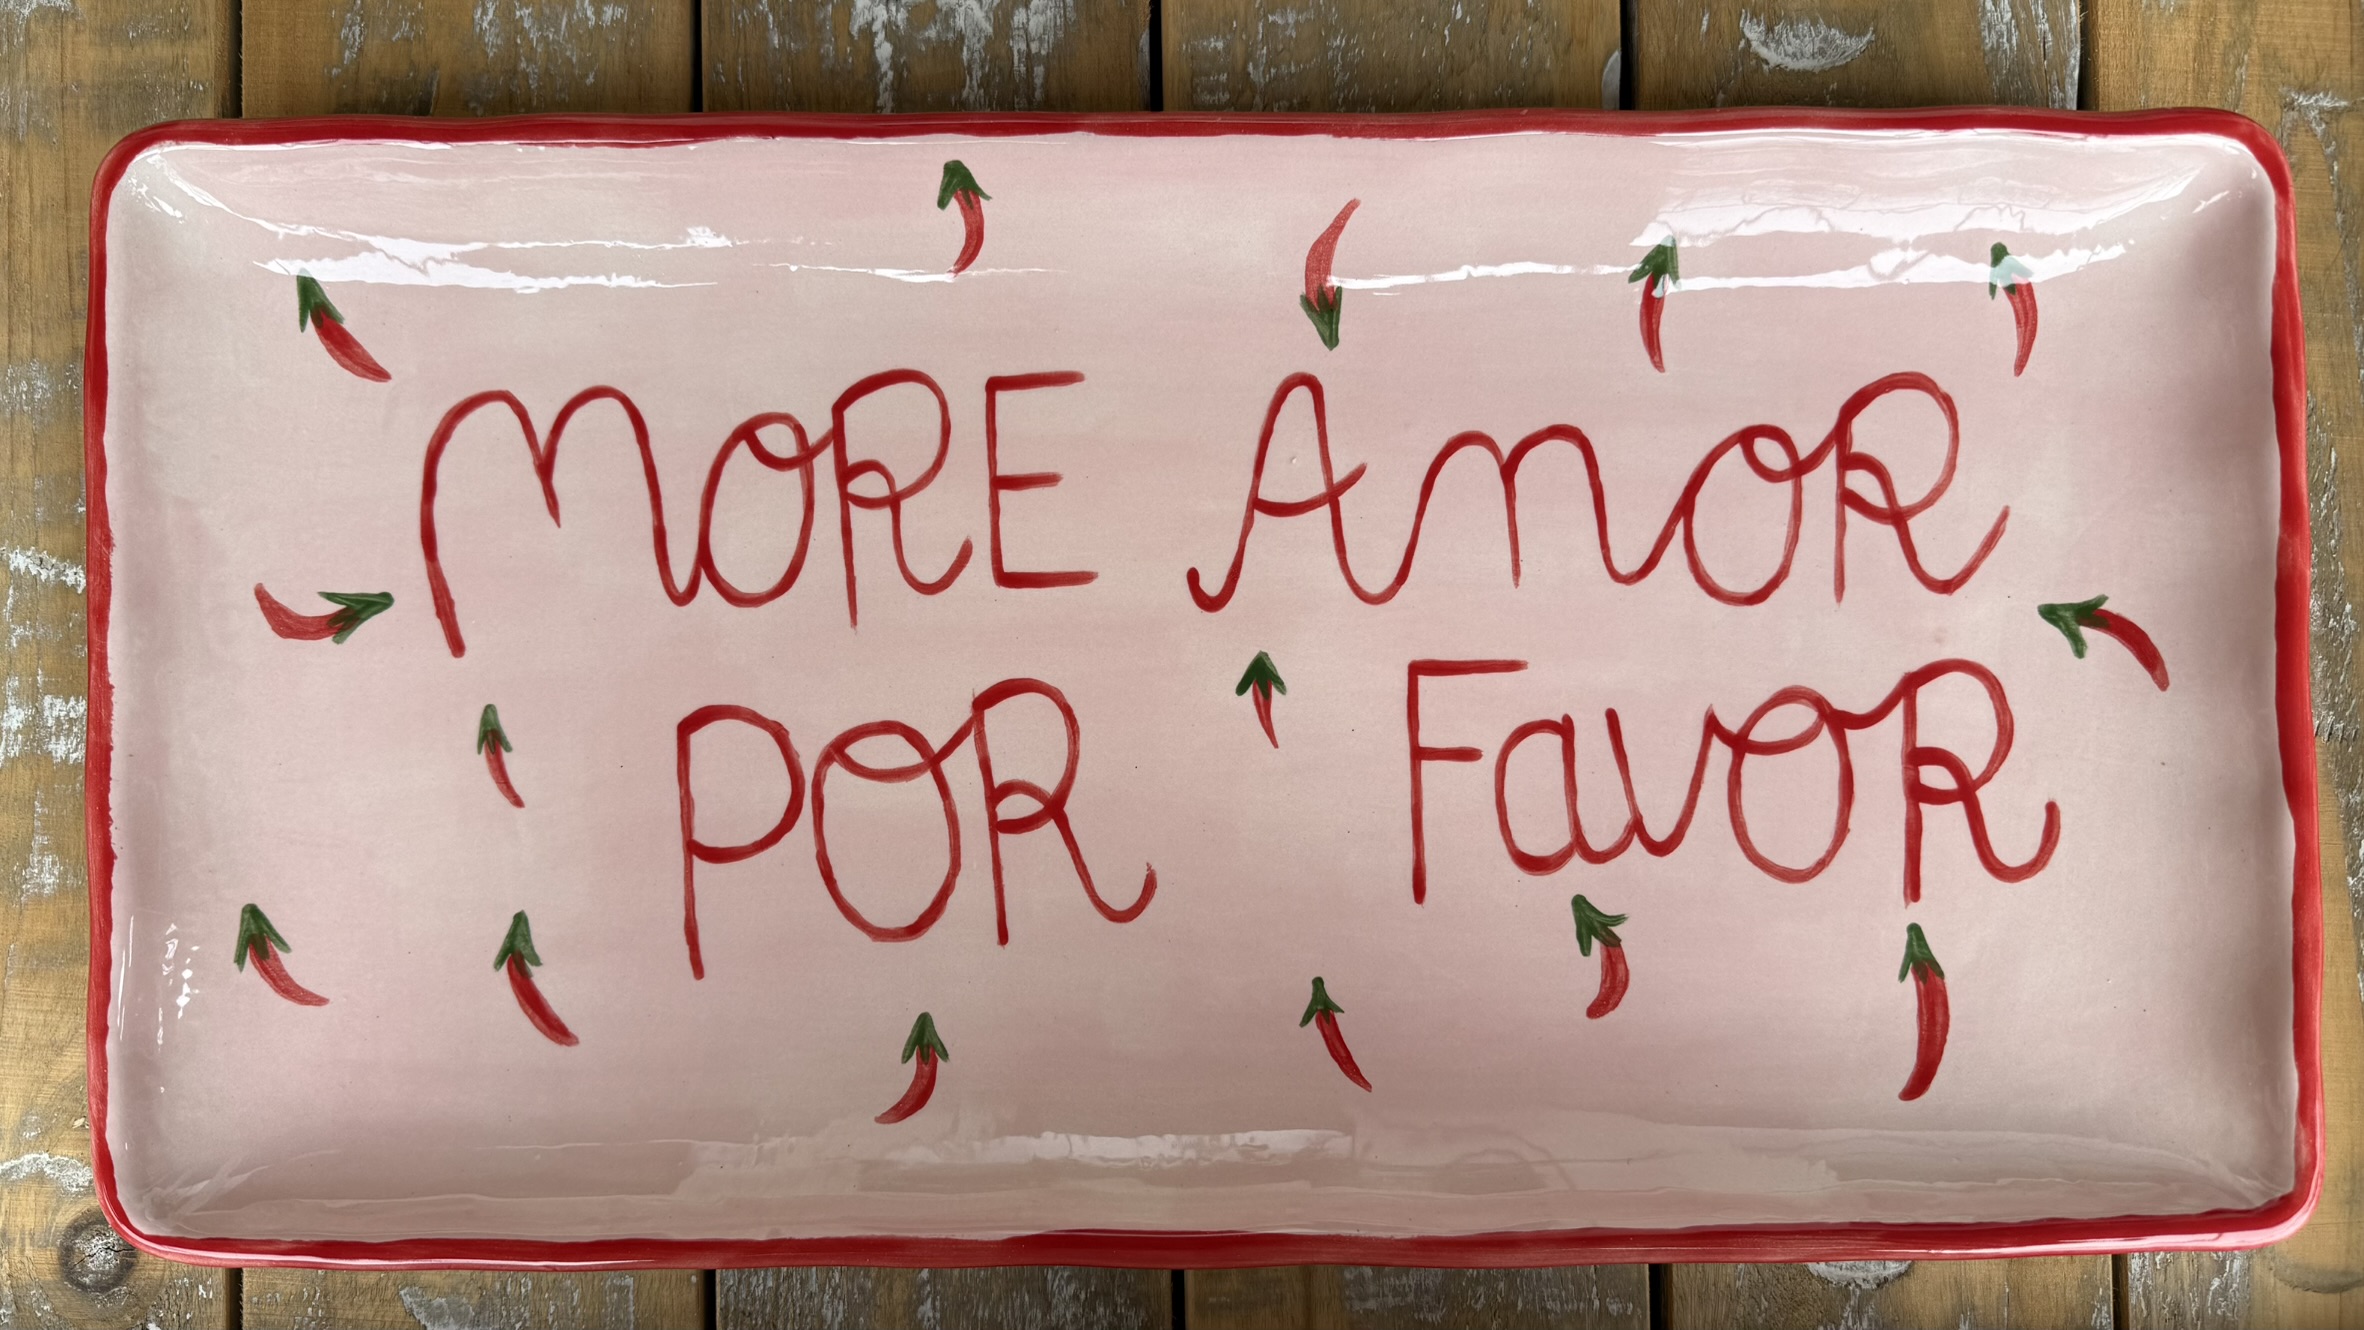 MORE AmOR
POR FavOR